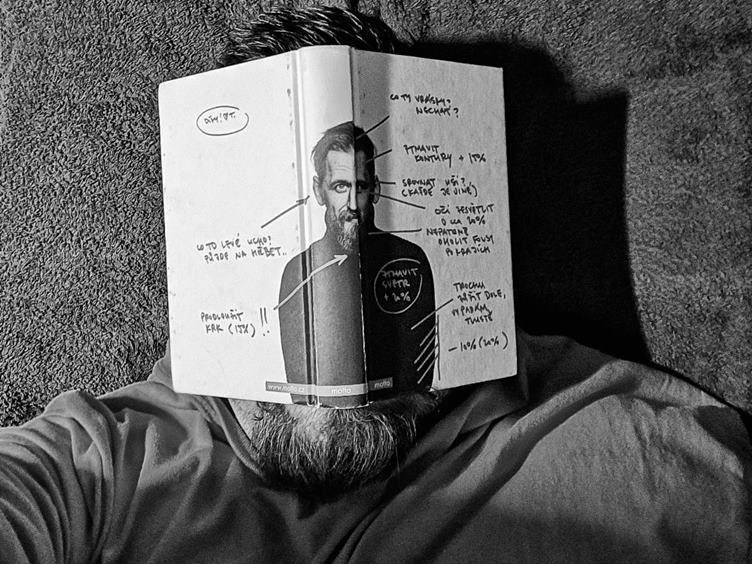 DÍKY!
CO TO LEVÉ UCHO?
PŮJDE NA HŘBET..
PRODLOUŽIT
KRK (15%) !!
CO TY VRÁSKY?
NECHAT?
ZTMAVIT
KONTURY + 15%
SROVNAT UŠI?
(KAŽDÉ JE JINÉ)
OČI ZESVĚTLIT
O CCA 20%
NEPATRNĚ
OHOLIT FOUSY
PO KRAJÍCH
ZTMAVIT
SVETR
+ 20%
TROCHU
ZÚŽIT DOLE,
VYPADÁM
TLUSTĚ
- 10% (20%)
www.motto.cz
motto
motto